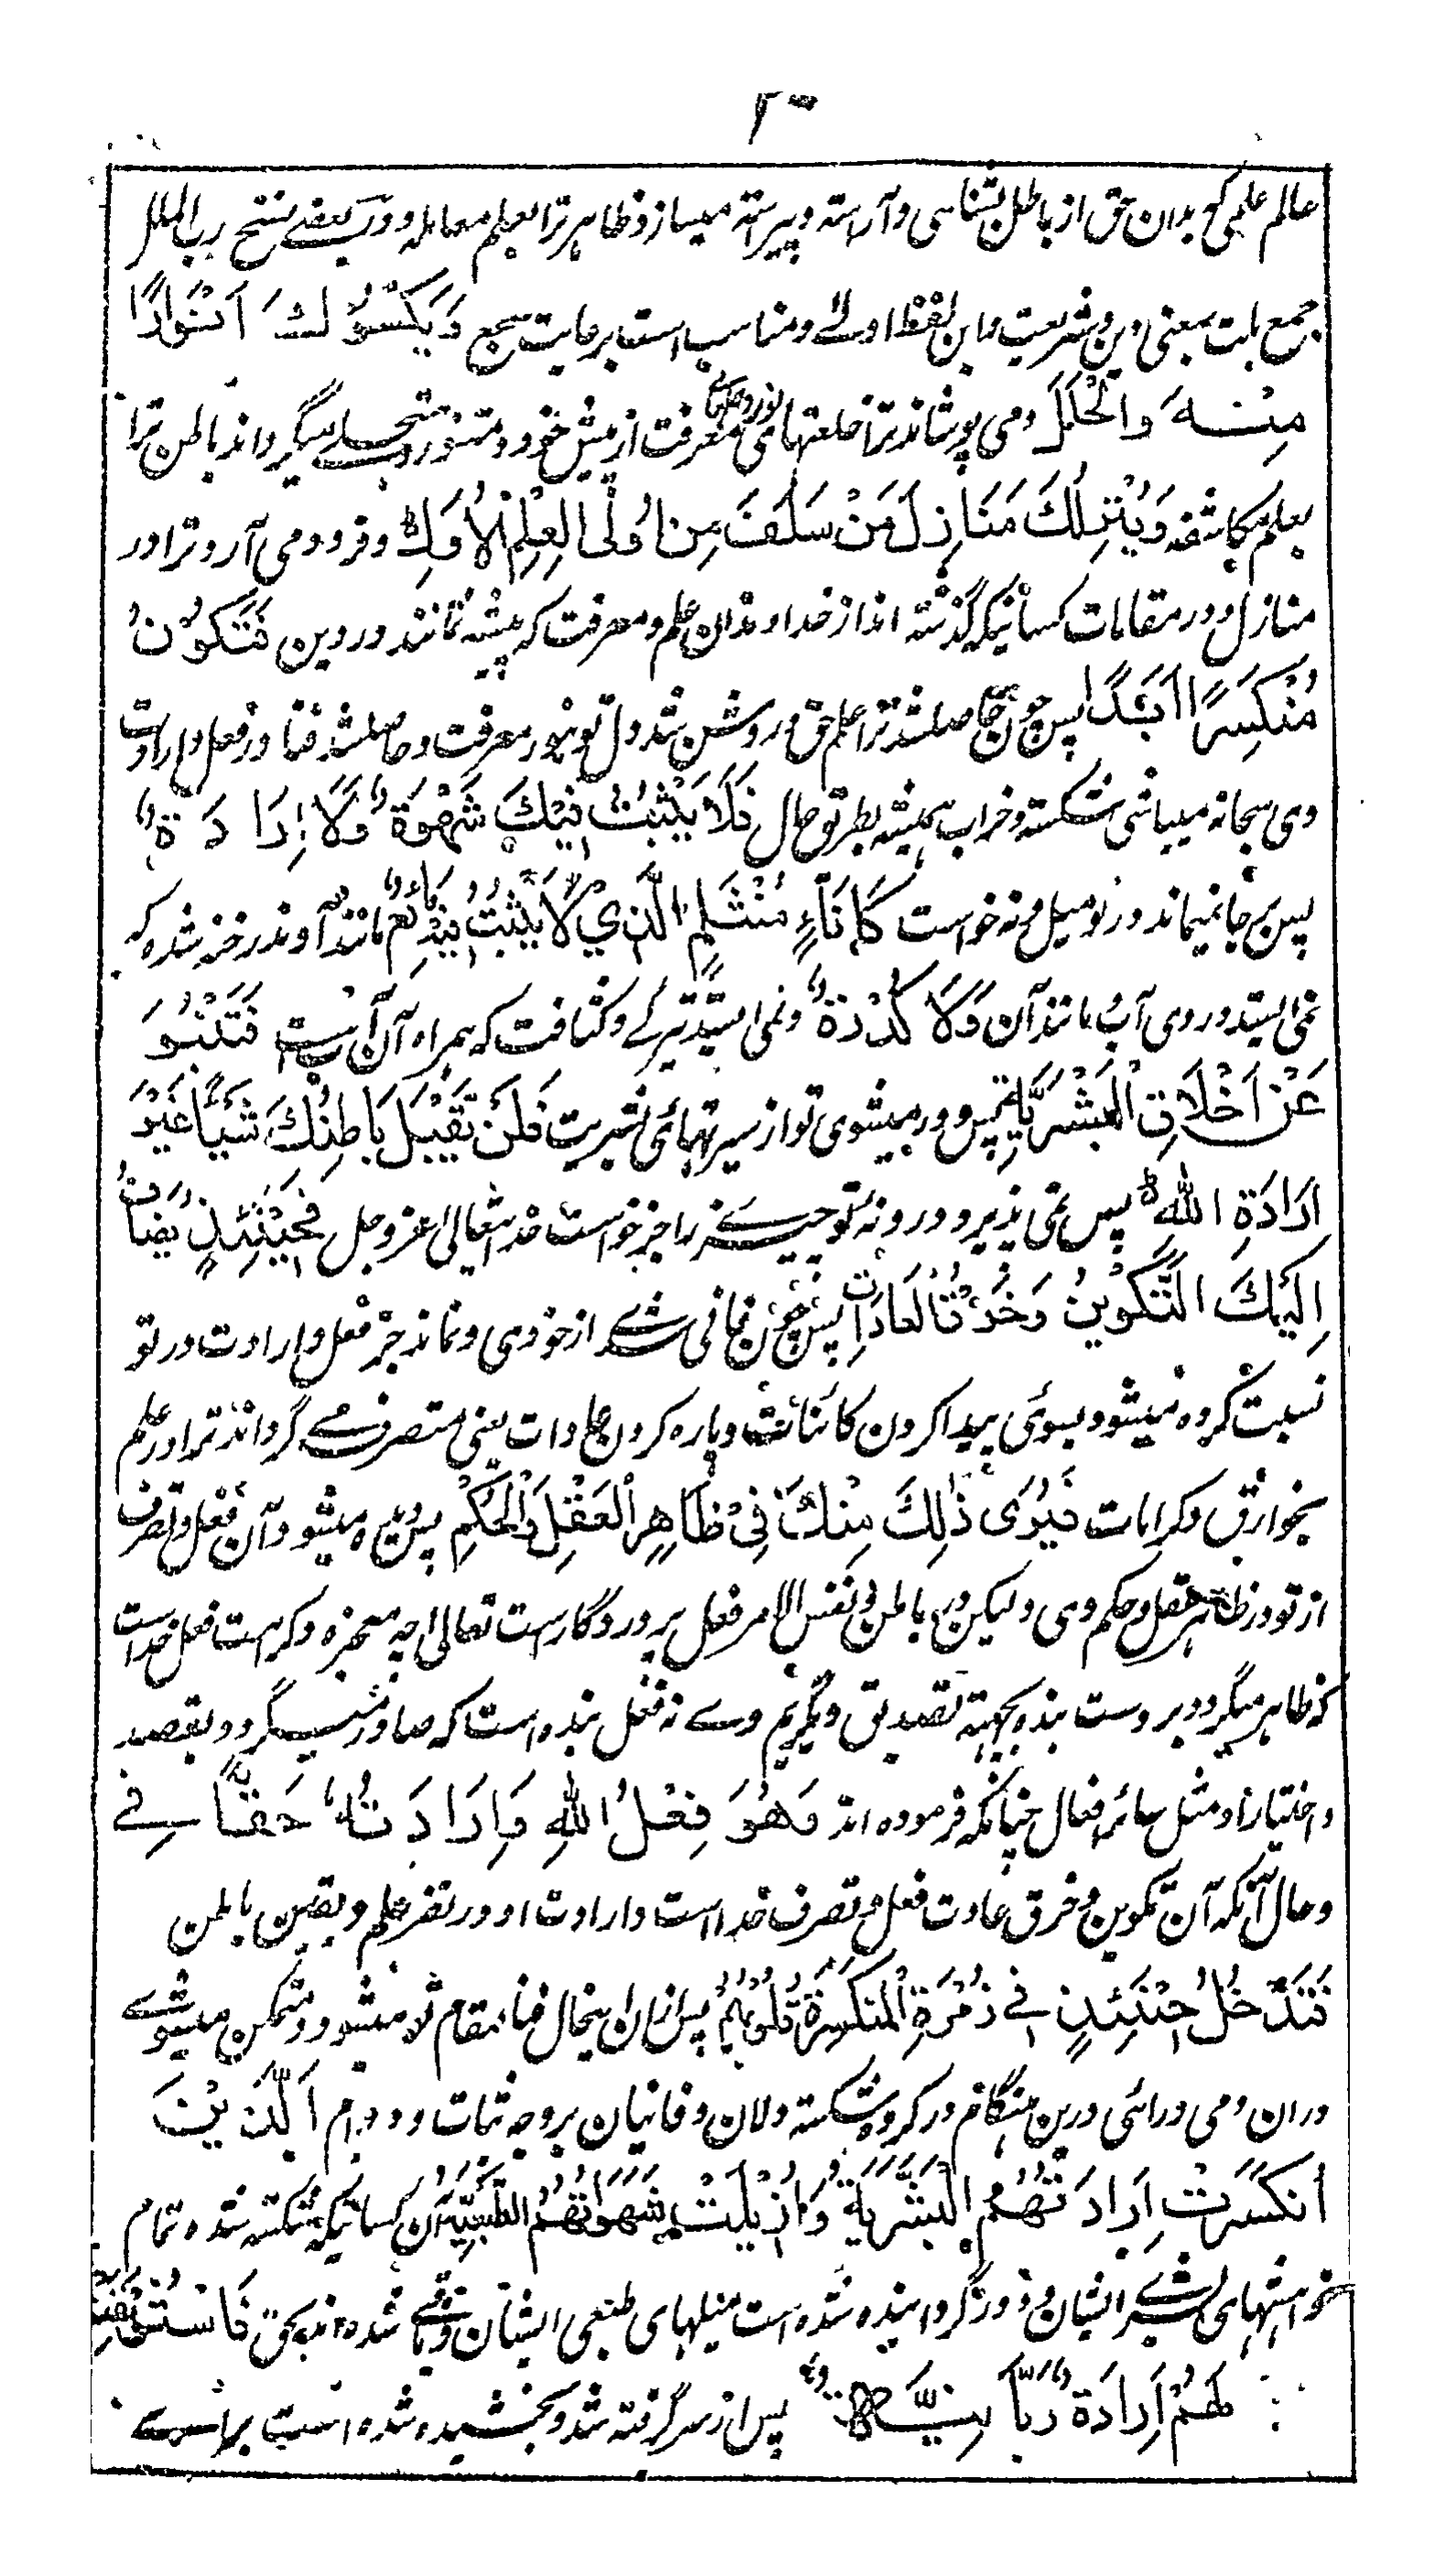 عالم علمی که بدان حق از باطل بشناسی و آراسته و پیراسته میسازد ظاهر ترا بعلم معامله و در بعضے نسخ رب الملل
جمع ملت بمعنی دین و شریعت و این لفظ اولے و مناسب است برعایت سجع وَيَكْسُوْكَ اَنْوَارًا
مِنْهُ وَالْحُلَلَ ومی پوشاند ترا خلعتهای نور و حلهای معرفت از پیش خود و متنور و متجلے میگرداند باطن ترا
بعلم مکاشفه وَيُنْزِلُكَ مَنَازِلَ مَنْ سَلَفَ مِنْ اُولِی الْعِلْمِ الْاُوَلِ و فرود می آرد ترا در
منازل و در مقامات کسانیکه گذشته اند از خداوندان علم و معرفت که پیشینیانند در دین فَتَكُوْنُ
مُنْكَسِرًا اَبَدًا پس چون حاصل شد ترا علم حق و روشن شد دل تو بنور معرفت و حاصل شد فنا در فعل و ارادت
وی سبحانه میباشی شکسته و خراب همیشه بطریق حال فَلَا يَثْبُتُ فِيْكَ شَهْوَةٌ وَلَا اِرَادَةٌ
پس بر جا نمیماند در تو میل و نه خواست كَاِنَاءٍ مُنْثَلِمٍ الَّذِيْ لَا يَثْبُتُ فِيْهِ مَائِعٌ مانند آوند رخنه شده که
نمی ایستد در وی آب و مانند آن وَلَا كُدْرَةٌ و نمی ایستد تیرگے و کثافت که همراه آن آب است فَتَنْبُوَ
عَنْ اَخْلَاقِ الْبَشَرِيَّةِ پس دور میشوی تو از سیرتهای بشریت فَلَنْ يَقْبَلَ بَاطِنُكَ شَيْئًا غَيْرَ
اِرَادَةِ اللهِ پس نمی پذیرد درونه تو چیزے را جز خواست خدایتعالی عز و جل فَحِيْنَئِذٍ يُضَافُ
اِلَيْكَ التَّكْوِيْنُ وَخَرْقُ الْعَادَاتِ پس چون فانی شدے از خودی و نماند جز فعل و ارادت در تو
نسبت کرده میشود بسوئی پیدا کردن کائنات و پاره کردن عادات یعنی متصرف مے گرداند ترا در عالم
بخوارق و کرامات فَيُرٰى ذٰلِكَ مِنْكَ فِيْ ظَاهِرِ الْعَقْلِ وَالْحُكْمِ پس دیده میشود آن فعل و تصرف
از تو در ظاهر عقل و حکم وی و لیکن در باطن و نفس الامر فعل پروردگار است تعالی چه معجزه و کرامت فعل خداست
که ظاهر میگردد بر دست بنده بجهت تصدیق و تکریم وے نه فعل بنده است که صادر میگردد بقصد
و اختیار او مثل سائر افعال چنانکه فرموده اند وَهُوَ فِعْلُ اللهِ وَاِرَادَتُهُ حَقًّا فِے
و حال آنکه آن تکوین و خرق عادت فعل و تصرف خداست و ارادت او در نظر علم و یقین باطن
فَتَدْخُلُ حِيْنَئِذٍ فِے زُمْرَةِ الْمُنْكَسِرَةِ قُلُوْبُهُمْ پس ازان اینحال فنا مقام تو میشود و متمکن میشوے
دران و می درائی درین هنگام در گروه شکسته دلان و فانیان بر وجه ثبات و دوام اَلَّذِيْنَ
اُنْكَسَرَتْ اِرَادَتُهُمُ الْبَشَرِيَّةُ وَاُزِيْلَتْ شَهَوَاتُهُمُ الطَّبِيْعِيَّةُ آن کسانیکه شکسته شده تمام
خواهشهای بشرے ایشان و دور گردانیده شده است میلهای طبعی ایشان و فانی شده اند بحق فَاسْتُؤْنِفَتْ
لَهُمْ اِرَادَةٌ رَبَّانِيَّةٌ پس از سر گرفته شد و بخشیده شده است براے